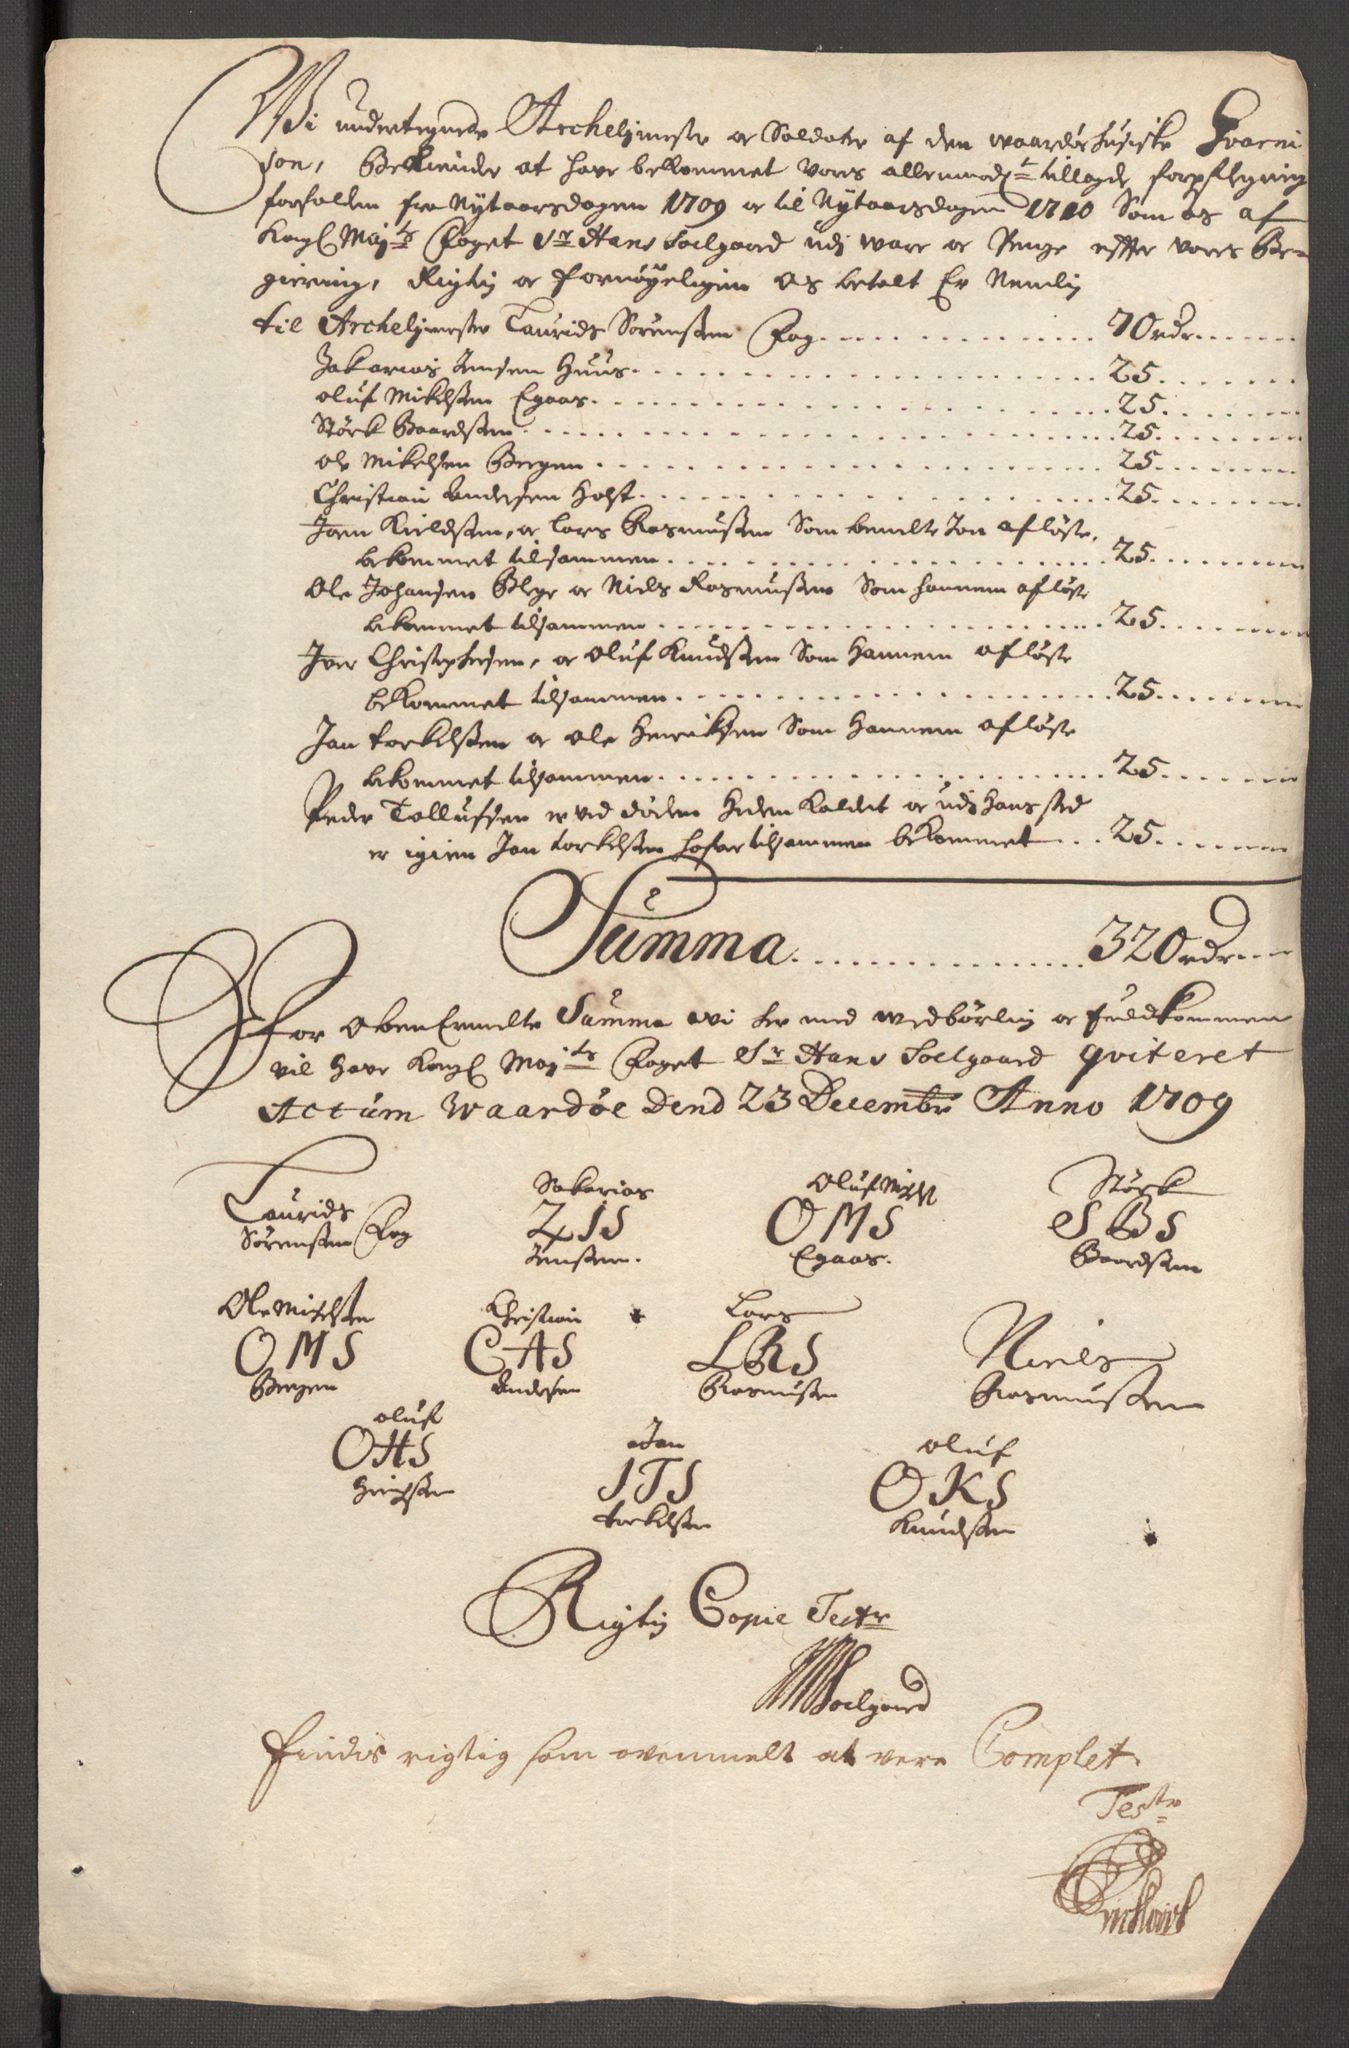 Wi undertegnede Archelymester og Soldater af den waardøehusiske Guarni
son, Bekiender at have bekommet vores allernaadt tillagde forpflegning
forfalden fra Nytaarsdagen 1709 og til Nytaarsdagen 1710 Som os af
Kongl Mayts Foget Sr Hans Soelgaard udj ware og Penge effter vores Be-
giering, Rigtig og fornøyeligen os betalt Er Nemlig
til Archelymester Laurids Sörensen Fog 70 rdr
Zakarias Jensen Huus 25
Oluf Mikelsen Egaas 25
Störk Baardsen 25
Ole Mikelsen Bergen 25
Christian Andersen Holst 25
Joen Kieldsen, og Lars Rasmussen Som bemelte Jon afløste,
bekommet tilsammen 25
Ole Johansen Blege og Niels Rasmussen Som hannem afløste
bekommet tilsammen 25
Iver Christophersen, og Oluf Knudsen Som Hannem afløste
bekommet tilsammen 25
Jan Torkelsen og Ole Henriksen Som Hannem afløste
bekommet tilsammen 25
Peder Tollufsen er ved døden heden kaldet og udj hans sted
er igien Jan Torkelsen hafver tilsammen bekommet 25
Summa 320 rdr
For oben Ermelte Summa wi her med wedbörlig og fuldkommen
vil have Kongl Mayts Foget Sr Hans Soelgaard qviteret
Actum Waardøe Dend 23 Decembr Anno 1709
Laurids Sörensen Fog
Sakarias ZIS Jensen.
Oluf Mikels OMS Egaas.
Störk SBS Baardsen
Ole Michelsen OMS Bergen
Christian CAS Andersen
Lars LRS Rasmussen
Niels Rasmussen
Oluf OHS Henrichsen
Jan ITS Torkelsen
Oluf OKS Knudsen
Rigtig Copie Testr
HSoelgaard
findis rigtig som ovenmelt at vere Complet.
Testr